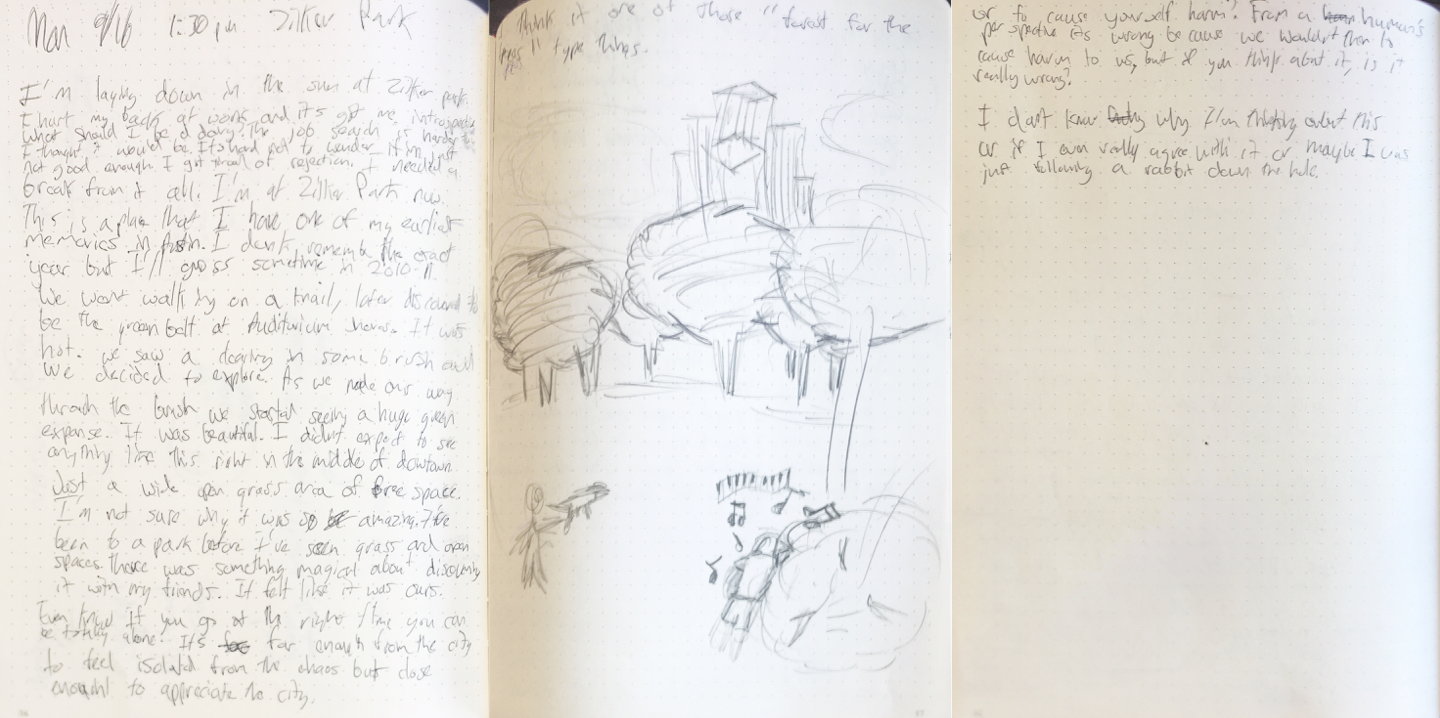 Mon 9/16 1:30 pm Zilker Park
I'm laying down in the sun at Zilker park.
I hurt my back at work and it's got me introspective
What should I be doing? The job search is harder
I thought it would be. It's hard not to wonder if I'm just
not good enough. I got tired of rejection. I needed a
break from it all. I'm at Zilker Park now.
This is a place that I have one of my earliest
memories in. I don't remember the exact
year but I'll guess sometime in 2010-11
We went walking on a trail, later discovered to
be the greenbelt at Auditorium shores. It was
hot. we saw a clearing in some brush and
we decided to explore. As we made our way
through the brush we started seeing a huge green
expanse. It was beautiful. I didn't expect to see
anything like this right in the middle of dowtown.
Just a wide open grass area of free space.
I'm not sure why it was so amazing. I've
been to a park before I've seen grass and open
spaces. There was something magical about discovering
it with my friends. It felt like it was ours.
Even know if you go at the right time you can
be totally alone. It's far enough from the city
to feel isolated from the chaos but close
enough to appreciate the city.
think it one of those "forest for the
trees" type things.
or to cause yourself harm? From a human's
perspective its wrong because we wouldn't them to
cause harm to us, but if you think about it, is it
really wrong?
I don't know why I'm thinking about this
or if I even really agree with it or maybe I was
just following a rabbit down the hole.